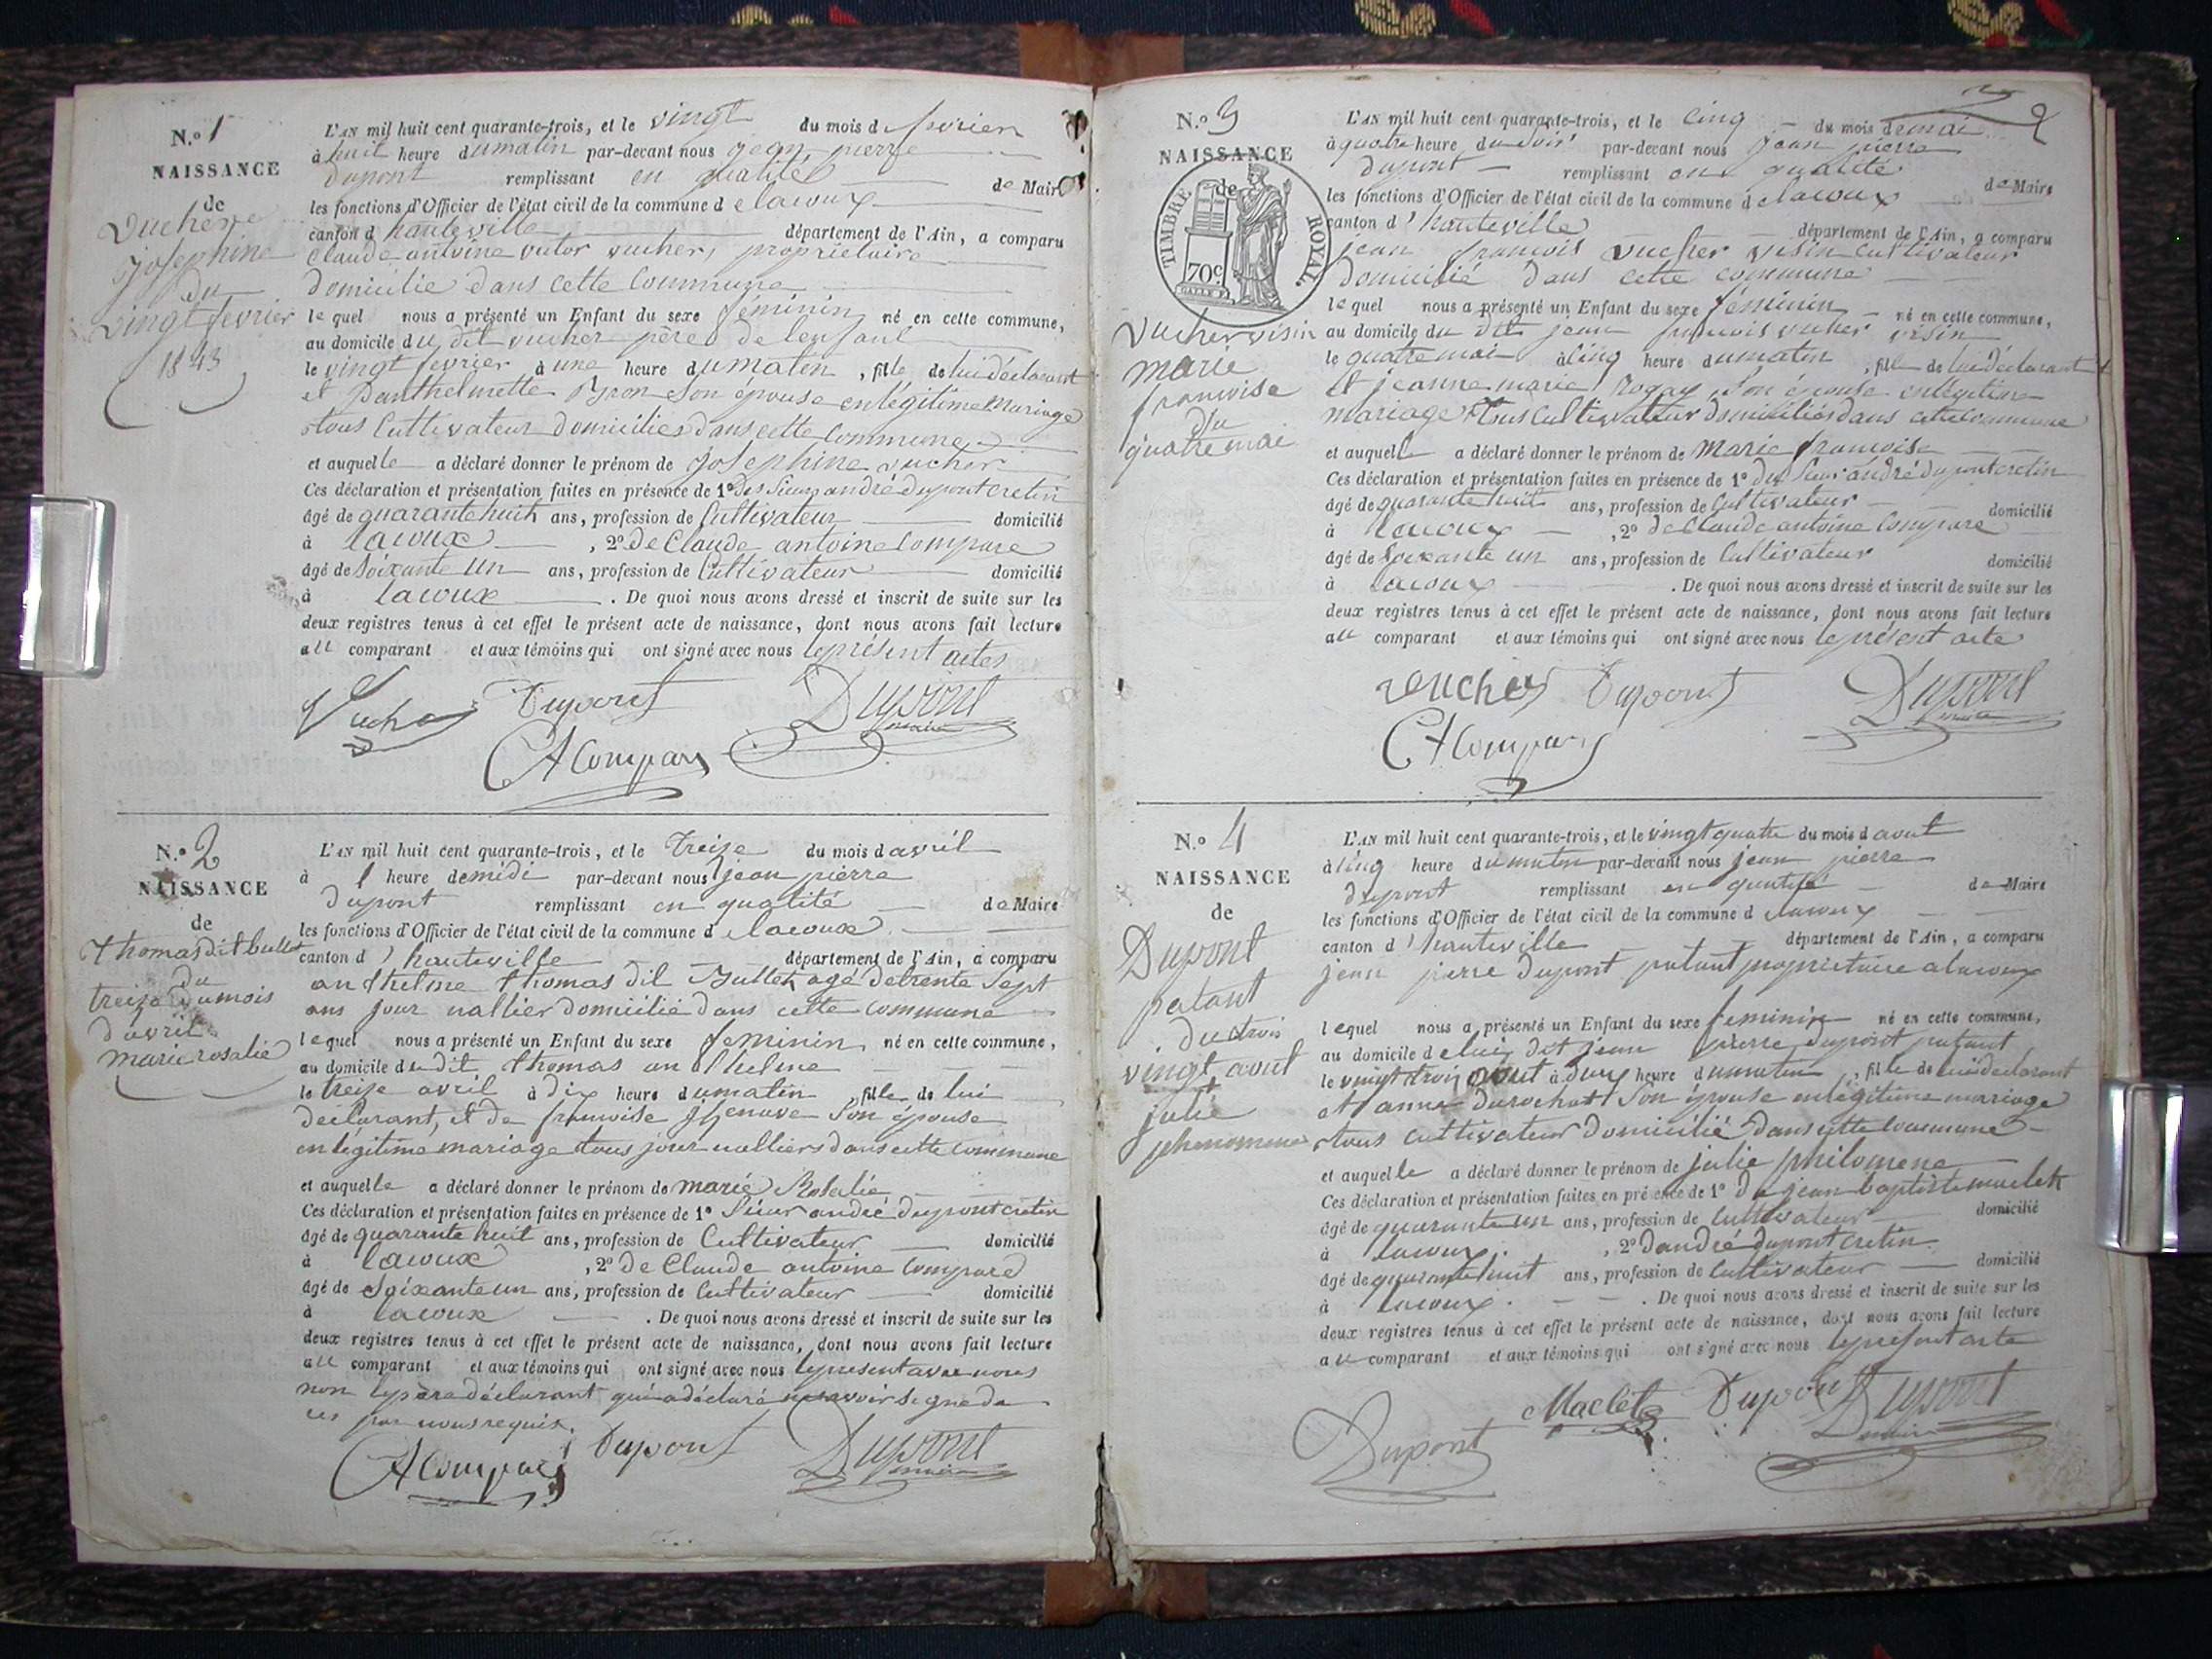 N.º 1
NAISSANCE
de
Vucher
Josephine
du
vingt fevrier
1843
L'AN mil huit cent quarante-trois, et le vingt du mois d fevrier
à huit heure du matin par-devant nous jean pierre
dupont remplissant en qualité de Maire
les fonctions d'Officier de l'état civil de la commune d elacoux
canton d hauteville département de l'Ain, a comparu
Claude antoine vucher, propriétaire
domicilié dans cette Commune
lequel nous a présenté un Enfant du sexe féminin né en cette commune,
au domicile du dit vucher père de lenfant
le vingt fevrier à une heure du matin, fille de lui déclarant
et Panthelmette son épouse en légitime Mariage
tous Cultivateur domiciliés dans cette Commune
et auquelle a déclaré donner le prénom de Josephine vucher
Ces déclaration et présentation faites en présence de 1º des Sieurs andré dupont cretin
âgé de quarante huit ans, profession de Cultivateur domicilié
à lacoux, 2º de Claude antoine Compare
âgé de soixante un ans, profession de Cultivateur domicilié
à lacoux. De quoi nous avons dressé et inscrit de suite sur les
deux registres tenus à cet effet le présent acte de naissance, dont nous avons fait lecture
au comparant et aux témoins qui ont signé avec nous le présent actes
Vucher Dupont Dupont
maire
CA Compare
N.º 2
NAISSANCE
de
Thomas dit bullet
du
treize du mois
d'avril
marie rosalie
L'AN mil huit cent quarante-trois, et le treize du mois d avril
à 1 heure de midi par-devant nous jean pierre
dupont remplissant en qualité de Maire
les fonctions d'Officier de l'état civil de la commune d elacoux
canton d'hauteville département de l'Ain, a comparu
anthelme thomas dit Bullet agé de trente sept
ans jour nallier domicilié dans cette commune
lequel nous a présenté un Enfant du sexe feminin né en cette commune,
au domicile du dit thomas anthelme
le treize avril à dix heure du matin, fille de lui
déclarant, et de françoise son épouse
en légitime mariage tous jour nalliers dans cette commune
et auquelle a déclaré donner le prénom de marie Rosalie
Ces déclaration et présentation faites en présence de 1º Sieur andré dupont cretin
âgé de quarante huit ans, profession de Cultivateur domicilié
à lacoux, 2º de Claude antoine Compare
âgé de soixante un ans, profession de Cultivateur domicilié
à lacoux. De quoi nous avons dressé et inscrit de suite sur les
deux registres tenus à cet effet le présent acte de naissance, dont nous avons fait lecture
au comparant et aux témoins qui ont signé avec nous le présent avec nous
non le père déclarant qui a déclaré ne savoir signé de
ces par nous requis.
CA Compare Dupont Dupont
maire
2
N.º 3
NAISSANCE
de
TIMBRE ROYAL.
70c
vucher visin
marie
francoise
du
quatre mai
L'AN mil huit cent quarante-trois, et le cinq du mois de mai
à quatre heure du soir par-devant nous jean pierre
dupont remplissant en qualité de Maire
les fonctions d'Officier de l'état civil de la commune d elacoux
canton d'hauteville département de l'Ain, a comparu
jean francois vucher visin Cultivateur
domicilié dans cette commune
lequel nous a présenté un Enfant du sexe féminin né en cette commune,
au domicile du dit jean francois vucher visin
le quatre mai à cinq heure du matin, fille de lui déclarant
et jeanne marie son épouse en légitime
mariage tous Cultivateur domiciliés dans cette commune
et auquelle a déclaré donner le prénom de Marie francoise
Ces déclaration et présentation faites en présence de 1º du Sieur andré dupont cretin
âgé de quarante huit ans, profession de Cultivateur domicilié
à lacoux, 2º de Claude antoine Compare
âgé de soixante un ans, profession de Cultivateur domicilié
à lacoux. De quoi nous avons dressé et inscrit de suite sur les
deux registres tenus à cet effet le présent acte de naissance, dont nous avons fait lecture
au comparant et aux témoins qui ont signé avec nous le présent acte
vucher Dupont Dupont
maire
CA Compare
N.º 4
NAISSANCE
de
Dupont
patant
du trois
vingt avout
julie
phenomene
L'AN mil huit cent quarante-trois, et le vingt quatre du mois d avout
à cinq heure du matin par-devant nous jean pierre
dupont remplissant en qualité de Maire
les fonctions d'Officier de l'état civil de la commune d elacoux
canton d'hauteville département de l'Ain, a comparu
jean pierre dupont patant propriétaire a lacoux
lequel nous a présenté un Enfant du sexe feminin né en cette commune,
au domicile de lui dit jean pierre dupont patant
le vingt trois avout à deux heure du matin, fille de lui déclarant
et anne durochat son épouse en légitime mariage
tous cultivateur domicilié dans cette commune
et auquelle a déclaré donner le prénom de julie philomene
Ces déclaration et présentation faites en présence de 1º de jean baptiste maclet
âgé de quarante un ans, profession de Cultivateur domicilié
à lacoux, 2º d'andré dupont cretin
âgé de quarante huit ans, profession de Cultivateur domicilié
à lacoux. De quoi nous avons dressé et inscrit de suite sur les
deux registres tenus à cet effet le présent acte de naissance, dont nous avons fait lecture
au comparant et aux témoins qui ont signé avec nous le présent acte
Dupont Maclet Dupont Dupont
maire